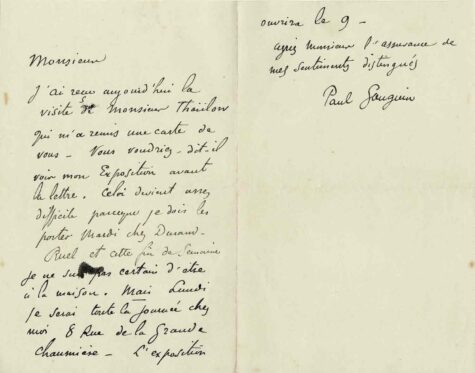 Monsieur
J'ai reçu aujourd'hui la
visite de Monsieur Thaulow
qui m'a remis une carte de
vous – Vous voudriez – dit-il
voir mon Exposition avant
la lettre. Celà devient assez
difficile parceque je dois les
porter Mardi chez Durand
Ruel et cette fin de Semaine
je ne suis pas certain d'être
à la maison. Mais Lundi
je serai toute la journée chez
moi 8 Rue de la Grande
chaumière – L'exposition
ouvrira le 9 –
agréez monsieur l'assurance de
mes sentiments distingués
Paul Gauguin